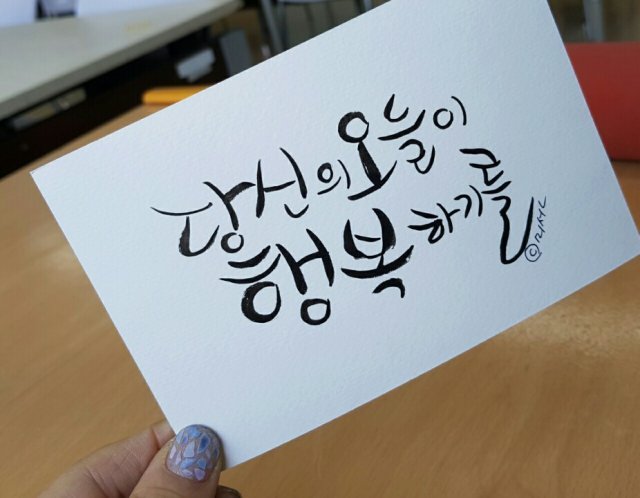 당신의 오늘이
행복하기를